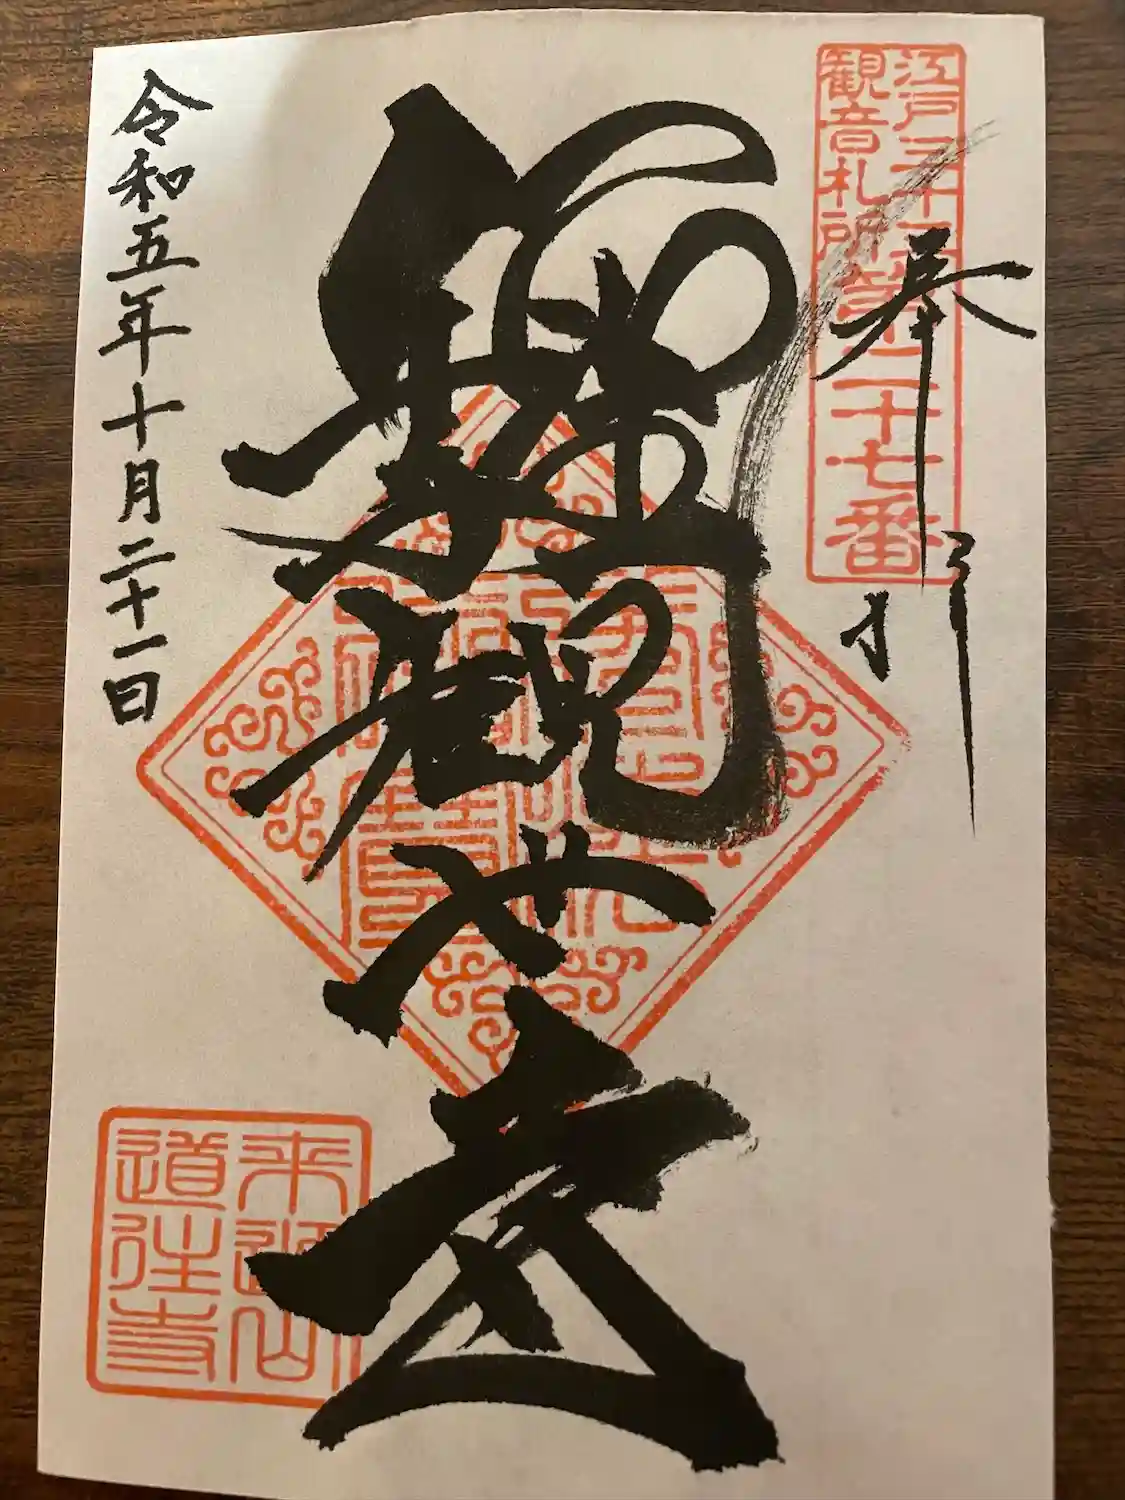 江戸三十三
観音札所
第二十七番
奉拝
聖観世音
来迎山
道往寺
令和五年十月二十一日